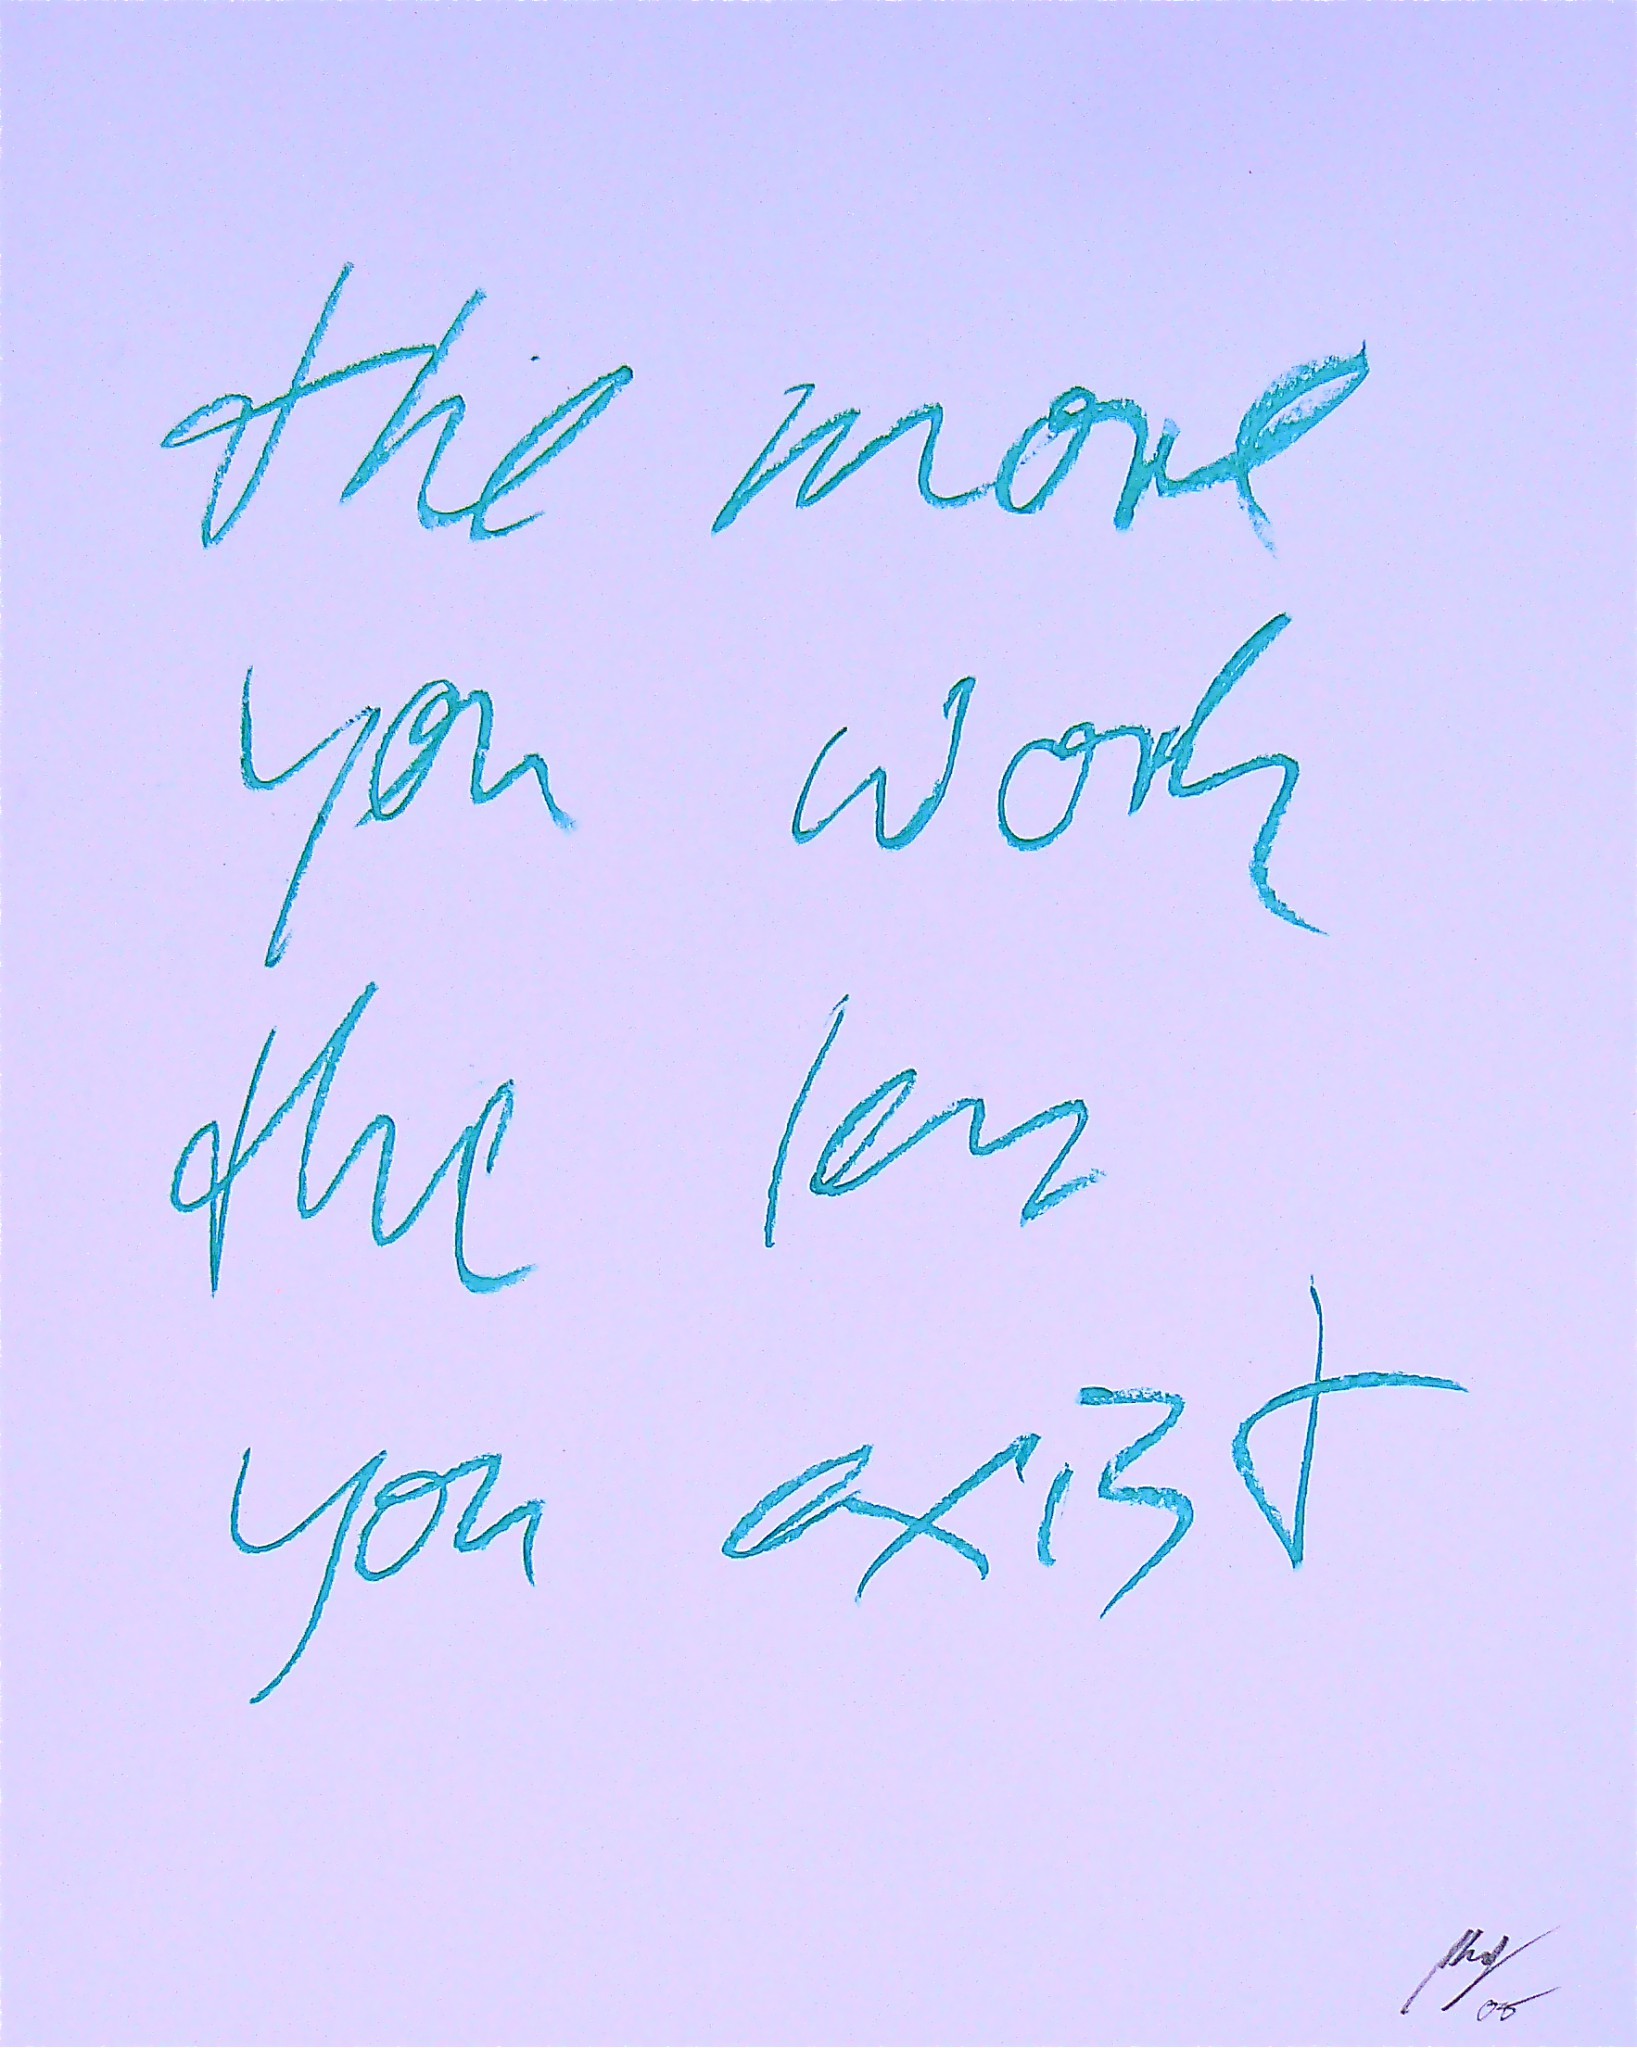 the more
you work
the less
you exist